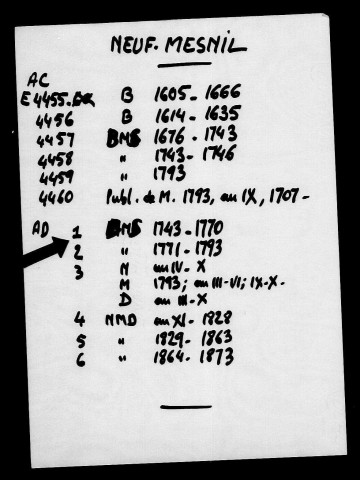 NEUF-MESNIL
AC
E 4455 B 1605-1666
4456 B 1614-1635
4457 BMS 1676-1743
4458 " 1743-1746
4459 " 1793
4460 Publ. de M. 1793, an IX, 1707-
AD 1 BMS 1743-1770
2 " 1771-1793
3 N an IV-X
M 1793; an III-VI; IX-X-
D an III-X
4 NMD an XI-1828
5 " 1829-1863
6 " 1864-1873